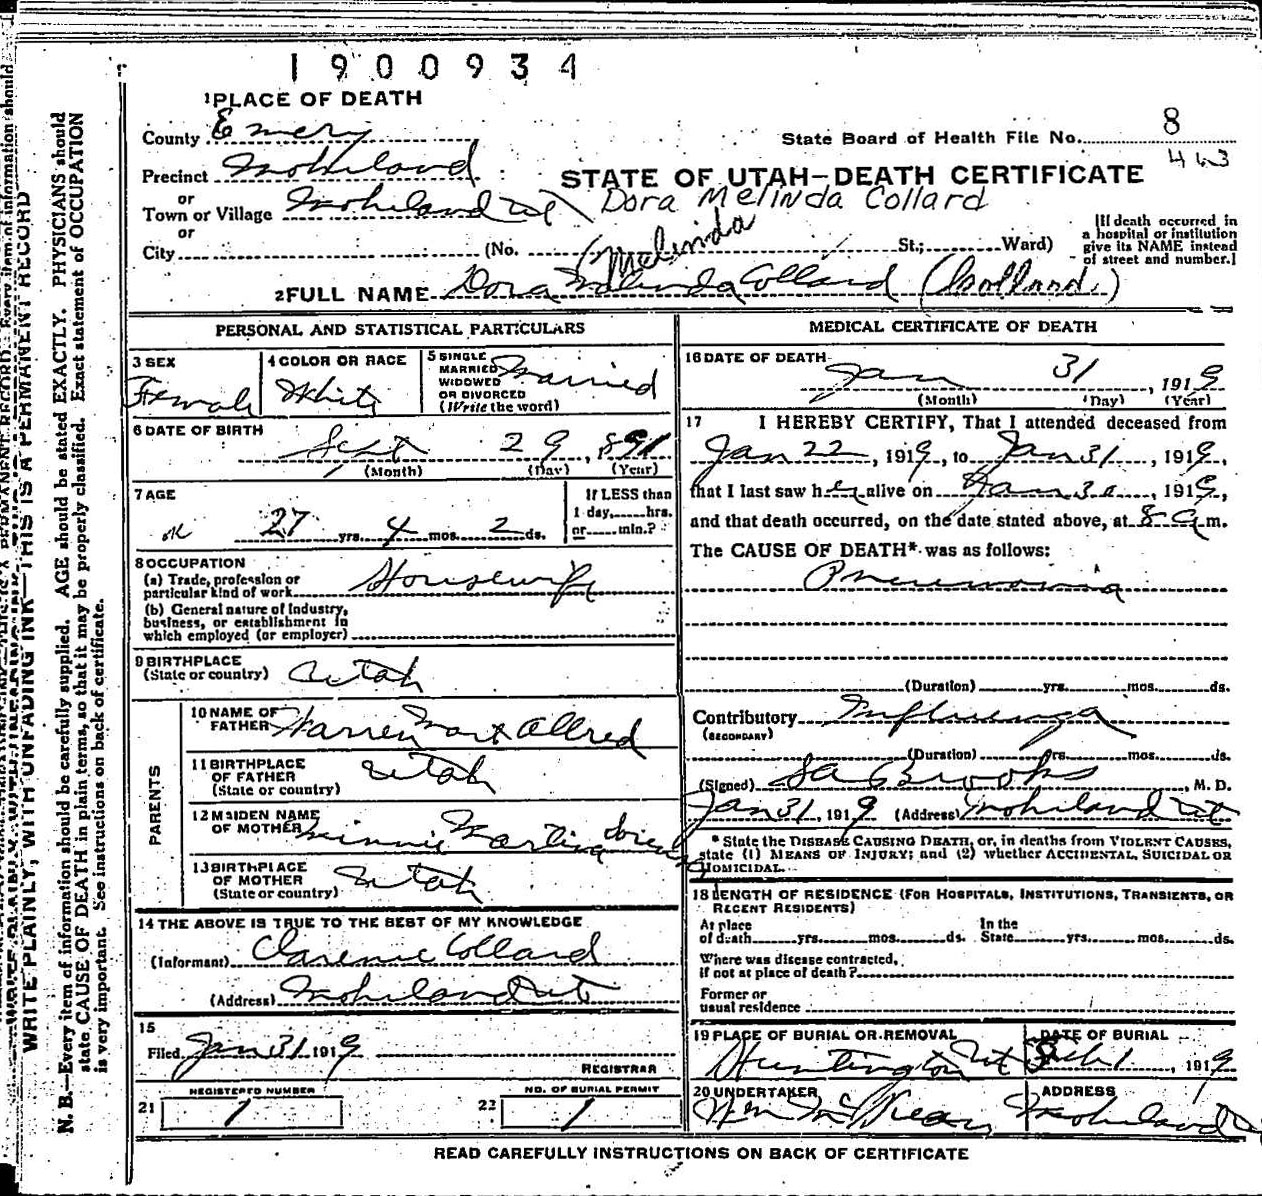 1900934
1 PLACE OF DEATH
County Emery
State Board of Health File No. 8
443
Precinct Mohrland
STATE OF UTAH—DEATH CERTIFICATE
or
Town or Village Mohrland Ut
Dora Melinda Collard
or
City (No. St.; Ward)
[If death occurred in
a hospital or institution
give its NAME instead
of street and number.]
(Malinda
2 FULL NAME Dora Malinda Collard (Collard.)
PERSONAL AND STATISTICAL PARTICULARS
3 SEX
Female
4 COLOR OR RACE
White
5 SINGLE
MARRIED
WIDOWED
OR DIVORCED
(Write the word)
Married
6 DATE OF BIRTH
Sept 29, 1891
(Month) (Day) (Year)
7 AGE
ok 27 yrs. 4 mos. 2 ds.
If LESS than
1 day, hrs.
or min.?
8 OCCUPATION
(a) Trade, profession or
particular kind of work Housewife
(b) General nature of Industry,
business, or establishment in
which employed (or employer)
9 BIRTHPLACE
(State or country) Utah
PARENTS
10 NAME OF
FATHER Warren Allred
11 BIRTHPLACE
OF FATHER
(State or country) Utah
12 MAIDEN NAME
OF MOTHER Minnie
13 BIRTHPLACE
OF MOTHER
(State or country) Utah
14 THE ABOVE IS TRUE TO THE BEST OF MY KNOWLEDGE
(Informant) Clarence Collard
(Address) Mohrland Ut
15
Filed Jan 31 1919
REGISTRAR
REGISTERED NUMBER
21 1
NO. OF BURIAL PERMIT
22 1
MEDICAL CERTIFICATE OF DEATH
16 DATE OF DEATH
Jan 31, 1919
(Month) (Day) (Year)
17 I HEREBY CERTIFY, That I attended deceased from
Jan 22, 1919, to Jan 31, 1919,
that I last saw her alive on Jan 30, 1919,
and that death occurred, on the date stated above, at 8 a m.
The CAUSE OF DEATH* was as follows:
Pneumonia
(Duration) yrs. mos. ds.
Contributory Influenza
(SECONDARY)
(Duration) yrs. mos. ds.
(Signed) Brooks, M. D.
Jan 31, 1919 (Address) Mohrland Ut
* State the DISEASE CAUSING DEATH, or, in deaths from VIOLENT CAUSES,
state (1) MEANS OF INJURY; and (2) whether ACCIDENTAL, SUICIDAL OR
HOMICIDAL.
18 LENGTH OF RESIDENCE (FOR HOSPITALS, INSTITUTIONS, TRANSIENTS, OR
RECENT RESIDENTS)
At place
of death yrs. mos. ds.
In the
State yrs. mos. ds.
Where was disease contracted,
if not at place of death?
Former or
usual residence
19 PLACE OF BURIAL OR REMOVAL
Huntington Ut
DATE OF BURIAL
Feb 1, 1919
20 UNDERTAKER
Wm
ADDRESS
Mohrland
READ CAREFULLY INSTRUCTIONS ON BACK OF CERTIFICATE
WRITE PLAINLY, WITH UNFADING INK—THIS IS A PERMANENT RECORD
N. B.—Every item of information should be carefully supplied. AGE should be stated EXACTLY. PHYSICIANS should
state CAUSE OF DEATH in plain terms, so that it may be properly classified. Exact statement of OCCUPATION
is very important. See instructions on back of certificate.